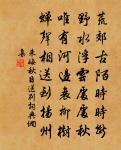 荒郊古陌時時斷
野水浮雲處處秋
唯有河邊衰柳樹
蟬聲相送到揚州
朱晦秋日送別詞典網
集